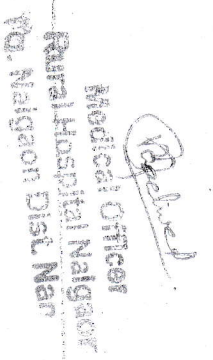 Medical Officer
Rural Hospital Naigaon
Tq. Naigaon Dist. Nan